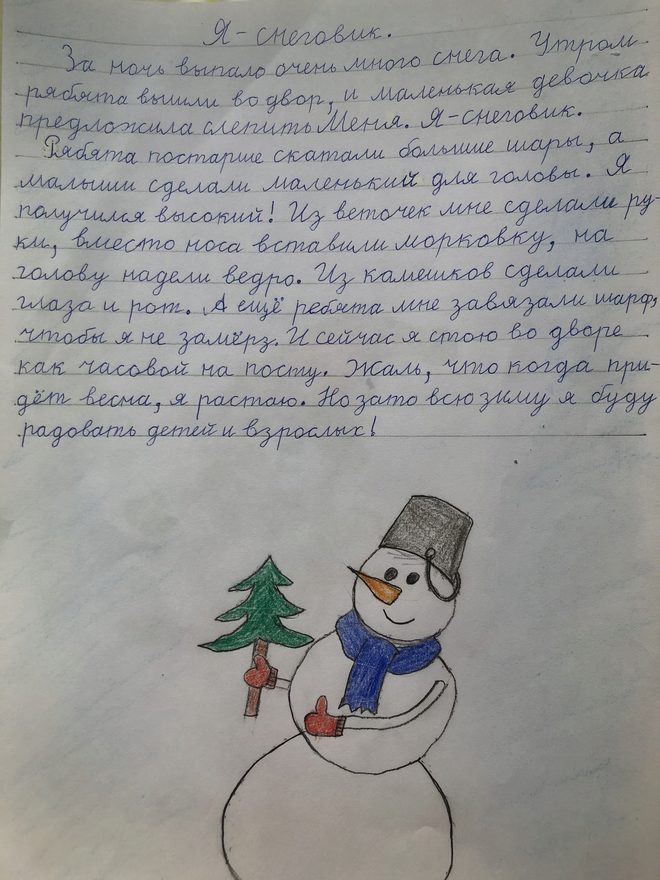 Я-снеговик.
За ночь выпало очень много снега. Утром
рябята вышли во двор, и маленькая девочка
предложила слепить Меня. Я-снеговик.
Рябята постарше скатали большие шары, а
малыши сделали маленький для головы. Я
получился высокий! Из веточек мне сделали ру-
ки, вместо носа вставили морковку, на
голову надели ведро. Из камешков сделали
глаза и рот. А ещё ребята мне завязали шарф,
чтобы я не замёрз. И сейчас я стою во дворе
как часовой на посту. Жаль, что когда при-
дёт весна, я растаю. Но зато всю зиму я буду
радовать детей и взрослых!